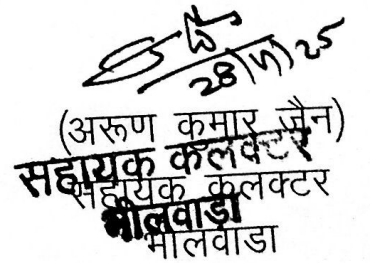 28/5/25
(अरूण कुमार जैन)
सहायक कलक्टर
सहायक कलक्टर
भीलवाडा
भीलवाडा